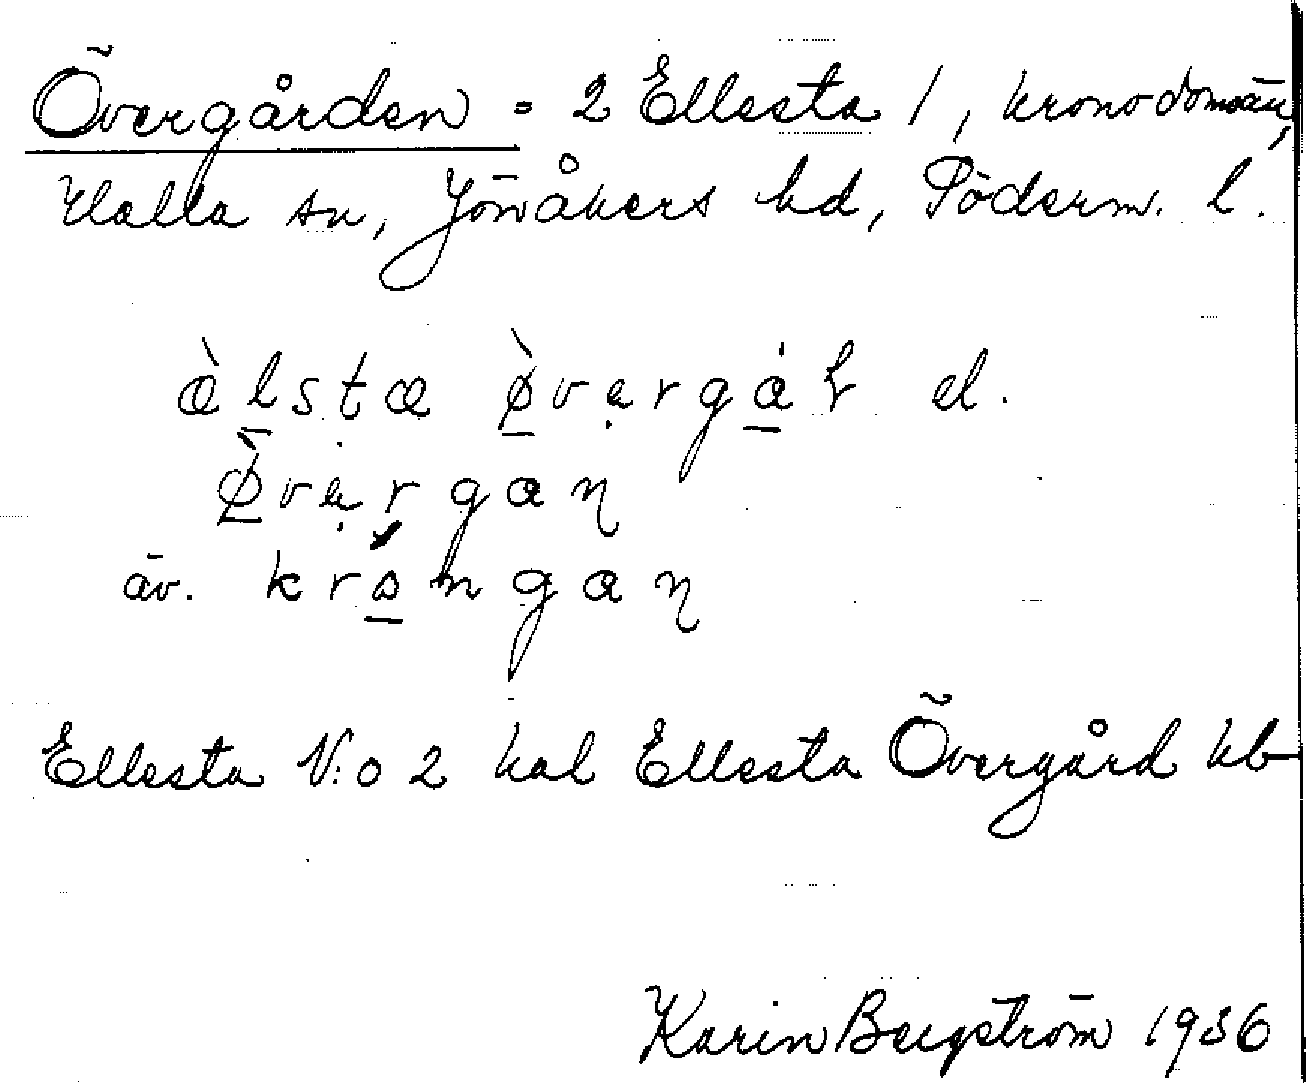 Övergården = 2 Ellesta 1, kronodomän,
Halla sn, Jönåkers hd, Söderm. l.
æ̀lsta ø̀vərgáɽ el.
ø̀vərgaɳ
äv. krṓngaɳ
Ellesta N:o 2 kal Ellesta Övergård kb
Karin Bergström 1936